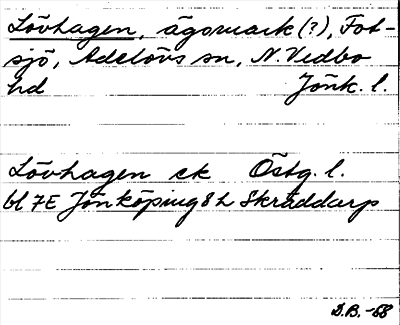 Lövhagen, ägomark (?), Fot-
sjö, Adelövs sn, N. Vedbo
hd Jönk. l.
Lövhagen ek Östg. l.
bl 7E Jönköping 8h Skräddarp
D.B. -68